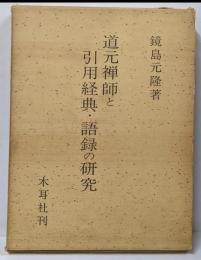 鏡島元隆著
道元禅師と
引用経典・語録の研究
木耳社刊